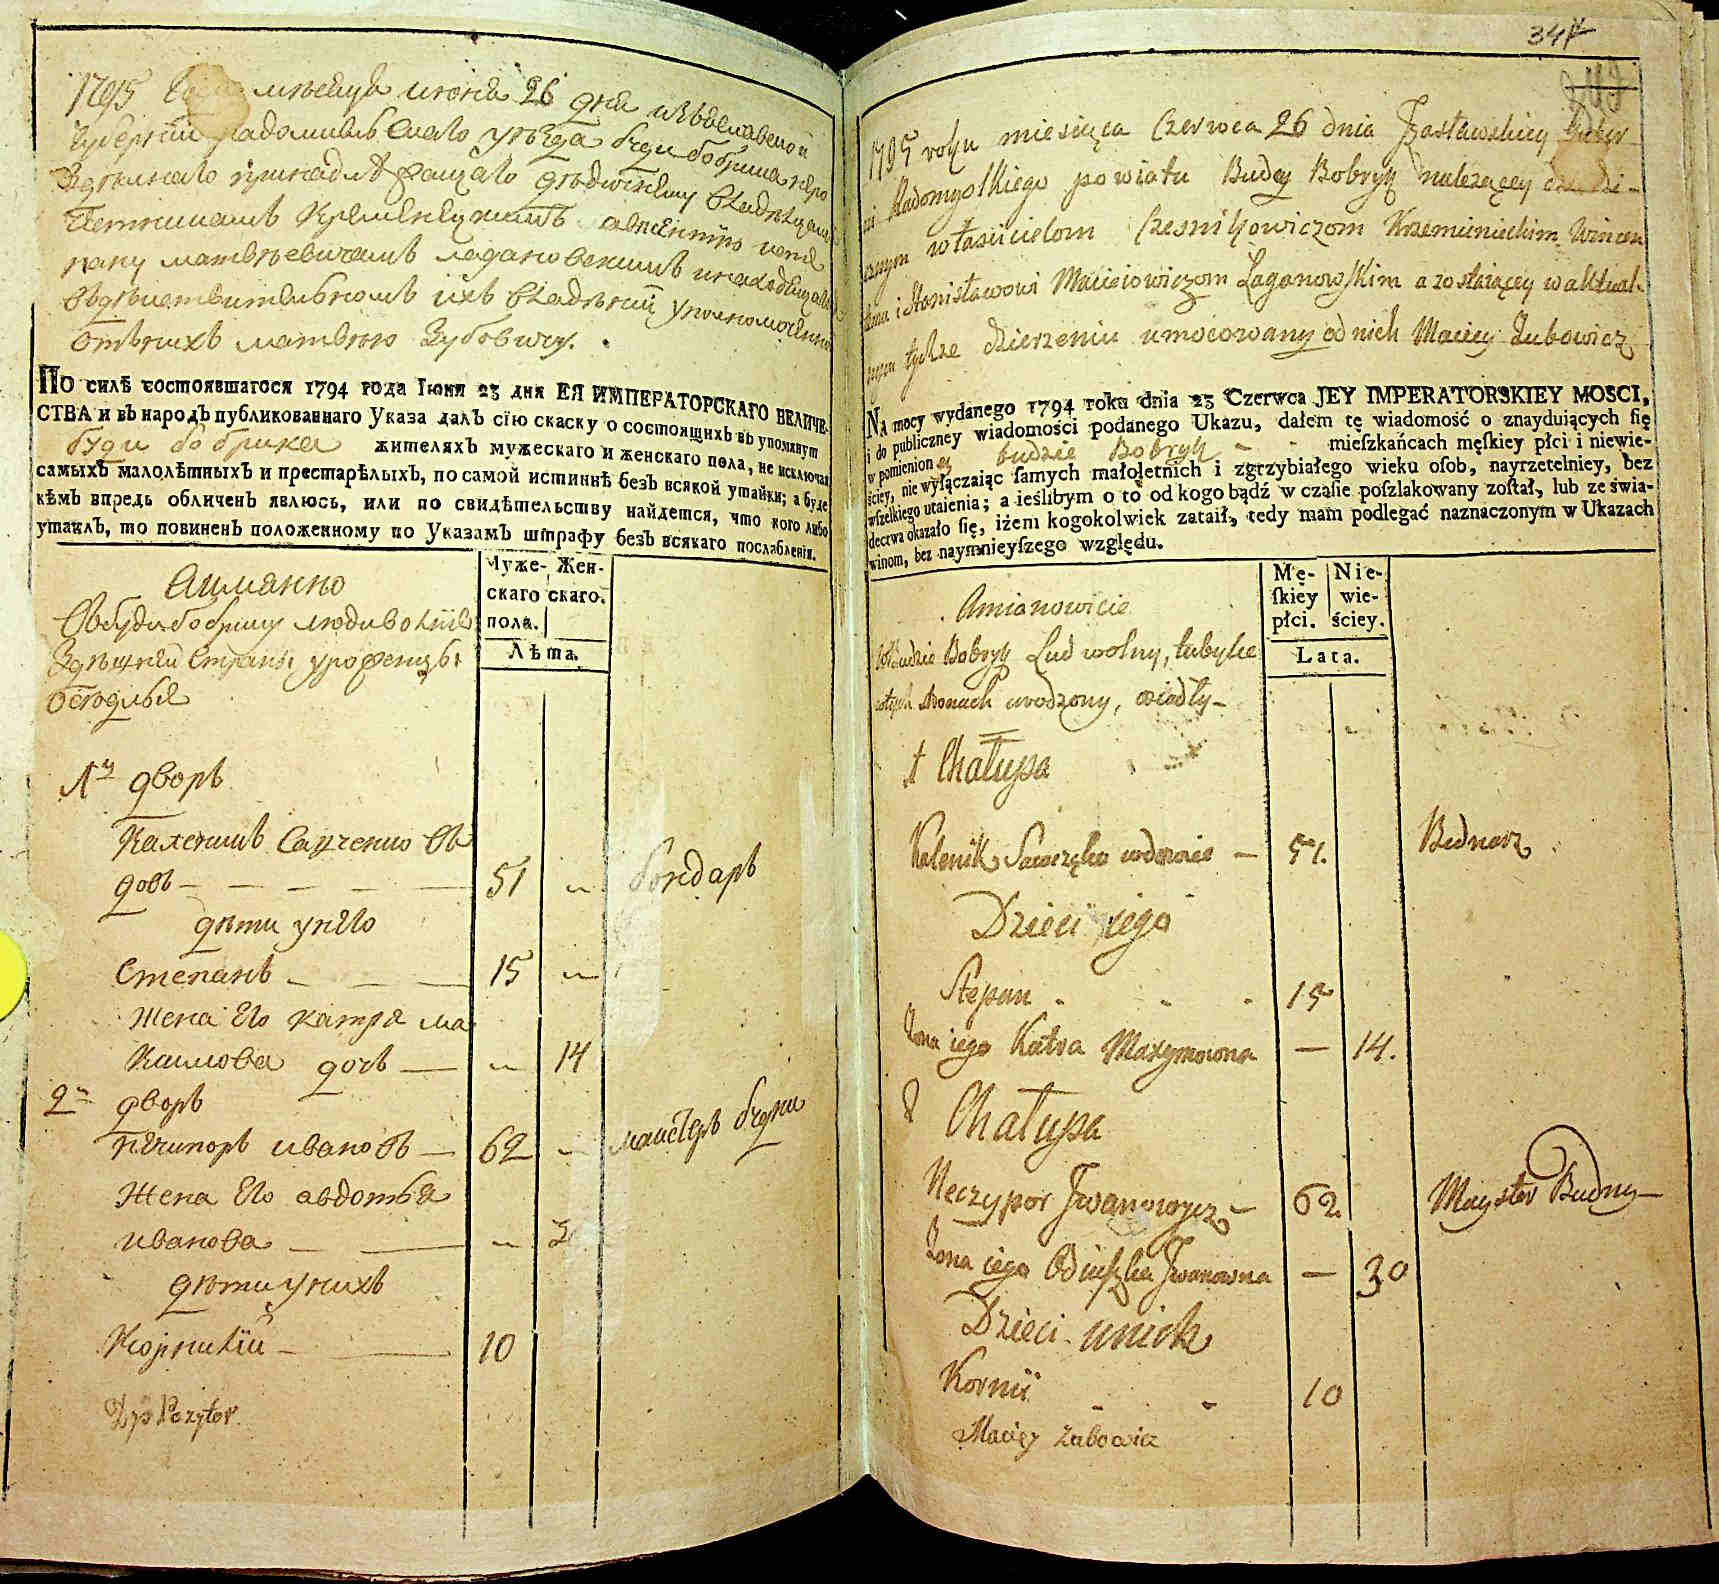 1795 года месяца июня 26 дня изяславской
губернии радомысльскаго уезда буди бобрика
здешнаго принадлежащаго дедичному владельцам
чесниками кременецкимъ
матвеевичамъ лагановскимъ
въдействительномъ ихъ владении уполномоченны
отъ нихъ матвею Зубовичу.
По силѣ состоявшагося 1794 года Iюня 23 дня ЕЯ ИМПЕРАТОРСКАГО ВЕЛИЧЕ-
СТВА и въ народъ публикованнаго Указа далъ сiю скаску о состоящихъ въ упомянут
буди бобрика жителяхъ мужескаго и женскаго пола, не исключая
самыхъ малолѣтныхъ и престарѣлыхъ, по самой истиннѣ безъ всякой утайки; а буде
кѣмъ впредь обличенъ явлюсь, или по свидѣтельству найдется, что кого либо
утаилъ, то повиненъ положенному по Указамъ штрафу безъ всякаго послабленiя.
Муже- Жен-
скаго скаго.
пола.
Лѣта.
Аимянно
Въбуди бобрику люди волние
Здешней Страны уроженцы
оседлые
1й дворъ
Каленикъ Савченко вд
довъ — 51 — бондаръ
дети унего
Степанъ — 15 —
Жена Его катря ма
Кашова дочь — — 14
2й дворъ
Нечипоръ ивановъ — 62 — маистеръ будни
Жена Его авдотья
иванова — —
дети унихъ
Корнилiй — 10
344
1795 roku miesiąca Czerwca 26 dnia Izasławskiey Guber
nii Radomyslkiego powiatu Budey Bobryk należącey dziedzi-
cznym właścicielom Czesnikowiczom Krzemienieckim Wincen
temu i Stanisławowi Macieiowiczom Łaganowskim a zostaiącey w aktual-
nym tychże dzierżeniu umocowany od nich Maciey Zubowicz
NA mocy wydanego 1794 roku dnia 23 Czerwca JEY IMPERATORSKIEY MOSCI,
i do publiczney wiadomości podanego Ukazu, dałem tę wiadomość o znayduiących ſię
w pomienion ey budzie Bobryk — mieſzkańcach męſkiey płci i niewie-
ściey, nie wyłączaiąc ſamych małoletnich i zgrzybiałego wieku oſob, nayrzetelniey, bez
wſzelkiego utaienia; a ieślibym o to od kogo bądź w czaſie poſzlakowany zoſtał, lub ze świa-
dectwa okazało ſię, iżem kogokolwiek zataił, tedy mam podlegać naznaczonym w Ukazach
winom, bez naymnieyſzego względu.
Mę- Nie-
ſkiey wie-
płci. ściey.
Lata.
Amianowicie
Budzie Bobryk Lud wolny, tubylce
wtych stronach urodzony, osiadły—
1 Chałupa
Kalenik Sawczęko wdowiec — 51. Bednarz
Dzieci jego
Stepan 15
Żona iego Katra Maxymowna — 14.
2 Chałupa
Neczypor Iwanowycz — 62. Mayster Budny—
Żona iego Iwanowna — 30
Dzieci unich
Kornii 10
Maciey Zubowicz